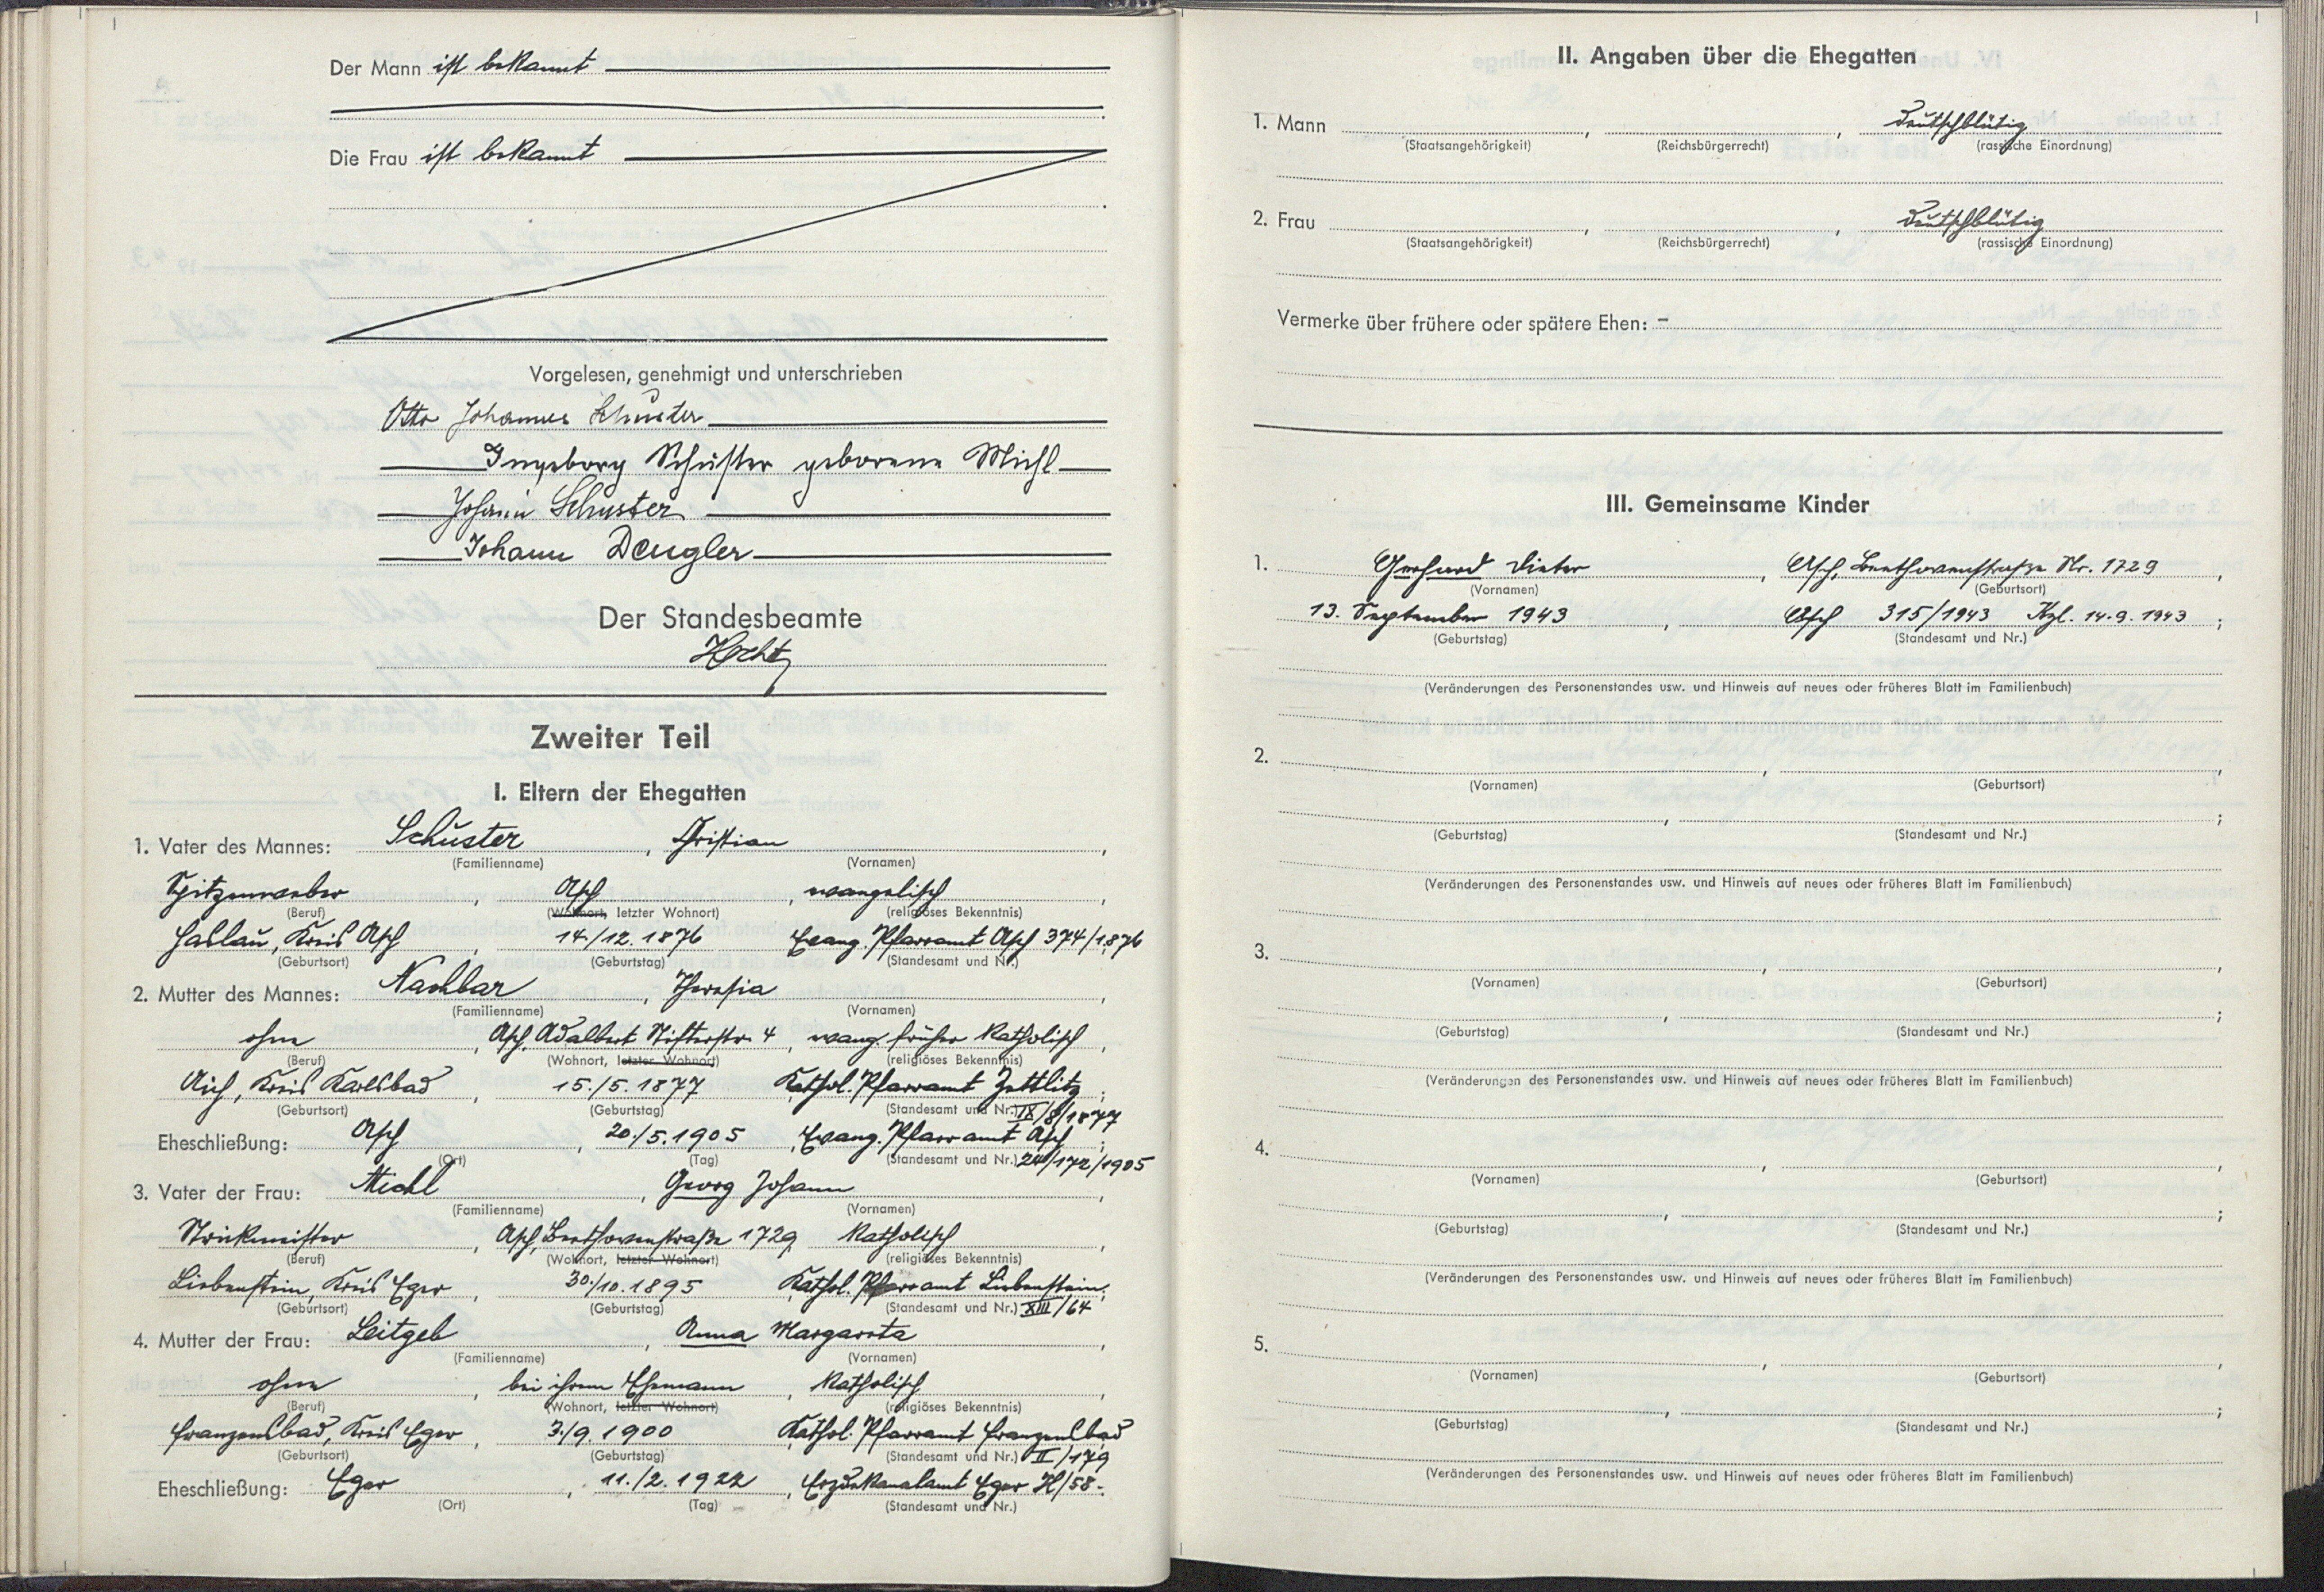 Der Mann ist bekannt
Die Frau ist bekannt
Vorgelesen, genehmigt und unterschrieben
Otto Johannes Schuster
Ingeborg Schuster geborene Michl
Johann Schuster
Johann Dengler
Der Standesbeamte
Hecht
Zweiter Teil
I. Eltern der Ehegatten
1. Vater des Mannes: Schuster, Christian,
(Familienname) (Vornamen)
Spitzenweber, Asch, evangelisch,
(Beruf) (Wohnort, letzter Wohnort) (religiöses Bekenntnis)
Haslau, Kreis Asch, 14./12.1876 Evang. Pfarramt Asch 374/1876
(Geburtsort) (Geburtstag) (Standesamt und Nr.)
2. Mutter des Mannes: Nachbar, Theresia,
(Familienname) (Vornamen)
ohne, Asch, Adalbert Stifterstr. 4, evang. früher katholisch,
(Beruf) (Wohnort, letzter Wohnort) (religiöses Bekenntnis)
Aich, Kreis Karlsbad, 15./5.1877 Kathol. Pfarramt Zettlitz;
(Geburtsort) (Geburtstag) (Standesamt und Nr.) IX/8/1877
Eheschließung: Asch, 20./5.1905, Evang. Pfarramt Asch;
(Ort) (Tag) (Standesamt und Nr.) 24/172/1905
3. Vater der Frau: Michl, Georg Johann,
(Familienname) (Vornamen)
Strickmeister, Asch, Beethovenstraße 1729, katholisch,
(Beruf) (Wohnort, letzter Wohnort) (religiöses Bekenntnis)
Liebenstein, Kreis Eger, 30./10.1895 Kathol. Pfarramt Liebenstein;
(Geburtsort) (Geburtstag) (Standesamt und Nr.) XIII/64
4. Mutter der Frau: Leitgeb, Anna Margareta,
(Familienname) (Vornamen)
ohne, bei ihrem Ehemann, katholisch,
(Beruf) (Wohnort, letzter Wohnort) (religiöses Bekenntnis)
Franzensbad, Kreis Eger, 3./9.1900 Kathol. Pfarramt Franzensbad
(Geburtsort) (Geburtstag) (Standesamt und Nr.) II/179
Eheschließung: Eger, 11./2.1922, Erzdekanalamt Eger H/58.
(Ort) (Tag) (Standesamt und Nr.)
II. Angaben über die Ehegatten
1. Mann , , deutschblütig
(Staatsangehörigkeit) (Reichsbürgerrecht) (rassische Einordnung)
2. Frau , , deutschblütig
(Staatsangehörigkeit) (Reichsbürgerrecht) (rassische Einordnung)
Vermerke über frühere oder spätere Ehen: –
III. Gemeinsame Kinder
1. Gerhard Dieter, Asch, Beethovenstraße Nr. 1729,
(Vornamen) (Geburtsort)
13. September 1943, Asch 315/1943 Kzl. 14.9.1943;
(Geburtstag) (Standesamt und Nr.)
(Veränderungen des Personenstandes usw. und Hinweis auf neues oder früheres Blatt im Familienbuch)
2. , ,
(Vornamen) (Geburtsort)
, ;
(Geburtstag) (Standesamt und Nr.)
(Veränderungen des Personenstandes usw. und Hinweis auf neues oder früheres Blatt im Familienbuch)
3. , ,
(Vornamen) (Geburtsort)
, ;
(Geburtstag) (Standesamt und Nr.)
(Veränderungen des Personenstandes usw. und Hinweis auf neues oder früheres Blatt im Familienbuch)
4. , ,
(Vornamen) (Geburtsort)
, ;
(Geburtstag) (Standesamt und Nr.)
(Veränderungen des Personenstandes usw. und Hinweis auf neues oder früheres Blatt im Familienbuch)
5. , ,
(Vornamen) (Geburtsort)
, ;
(Geburtstag) (Standesamt und Nr.)
(Veränderungen des Personenstandes usw. und Hinweis auf neues oder früheres Blatt im Familienbuch)